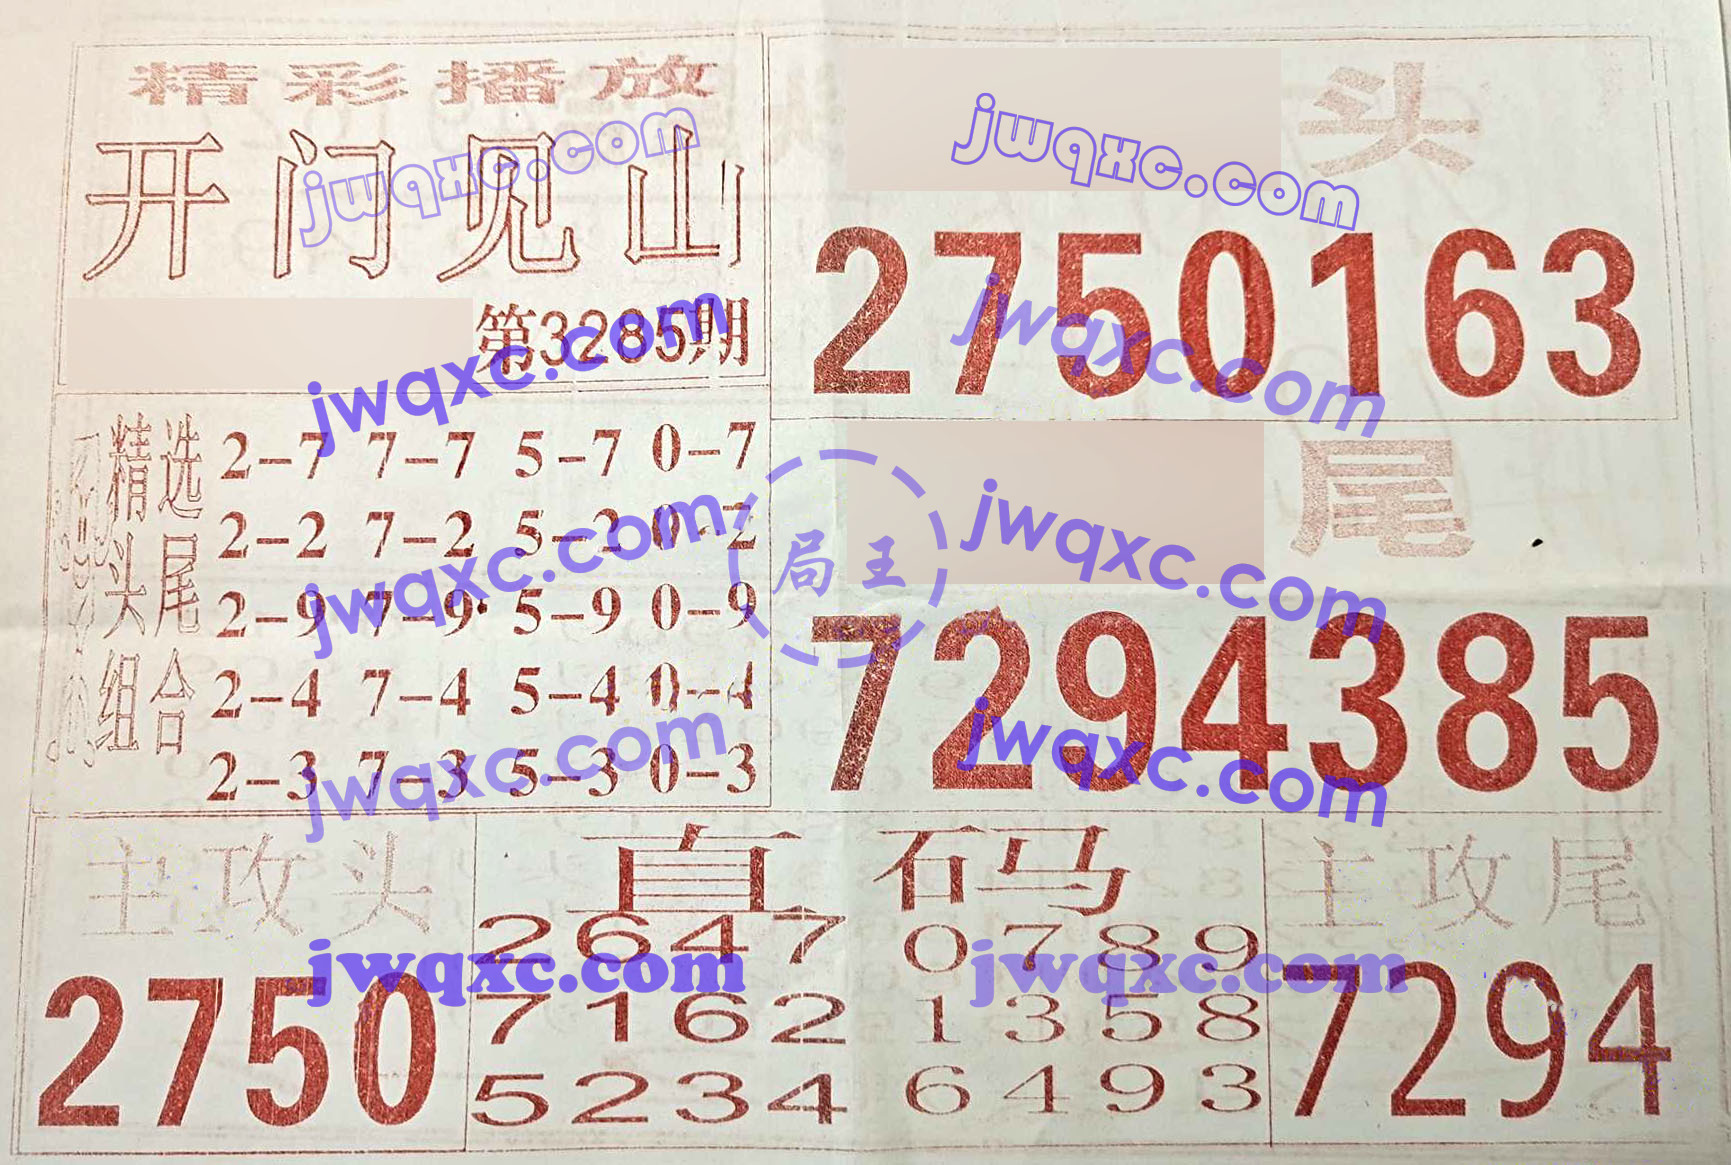 精彩播放
开门见山
第3285期
头
2750163
精选
头尾
组合
2-7 7-7 5-7 0-7
2-2 7-2 5-2 0-2
2-9 7-9 5-9 0-9
2-4 7-4 5-4 0-4
2-3 7-3 5-3 0-3
尾
7294385
主攻头
2750
直码马
2647 0789
7162 1358
5234 6493
主攻尾
7294
jwqxc.com
jwqxc.com
jwqxc.com
jwqxc.com
局王
jwqxc.com
jwqxc.com
jwqxc.com
jwqxc.com
jwqxc.com
jwqxc.com